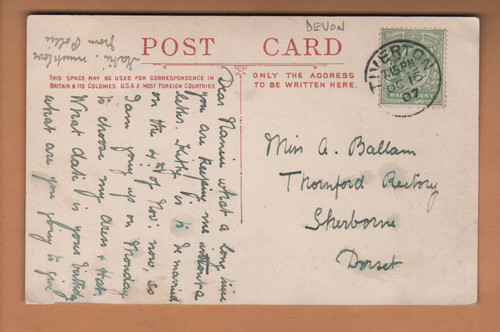 DEVON
POST CARD
THIS SPACE MAY BE USED FOR CORRESPONDENCE IN
BRITAIN & ITS COLONIES, U.S.A. & MOST FOREIGN COUNTRIES.
ONLY THE ADDRESS
TO BE WRITTEN HERE.
TIVERTON
7.15 PM
OC 16
07
Miss A. Ballam
Thornford Rectory
Sherborne
Dorset
Dear Nannie what a long time
you are keeping me without a
letter. Kitty is to be married
on the 4th of Nov: now, so
I am going up on Monday
to choose my dress & hat.
What date is your birthday
what are you going to give
Katie, much love
from Pollie